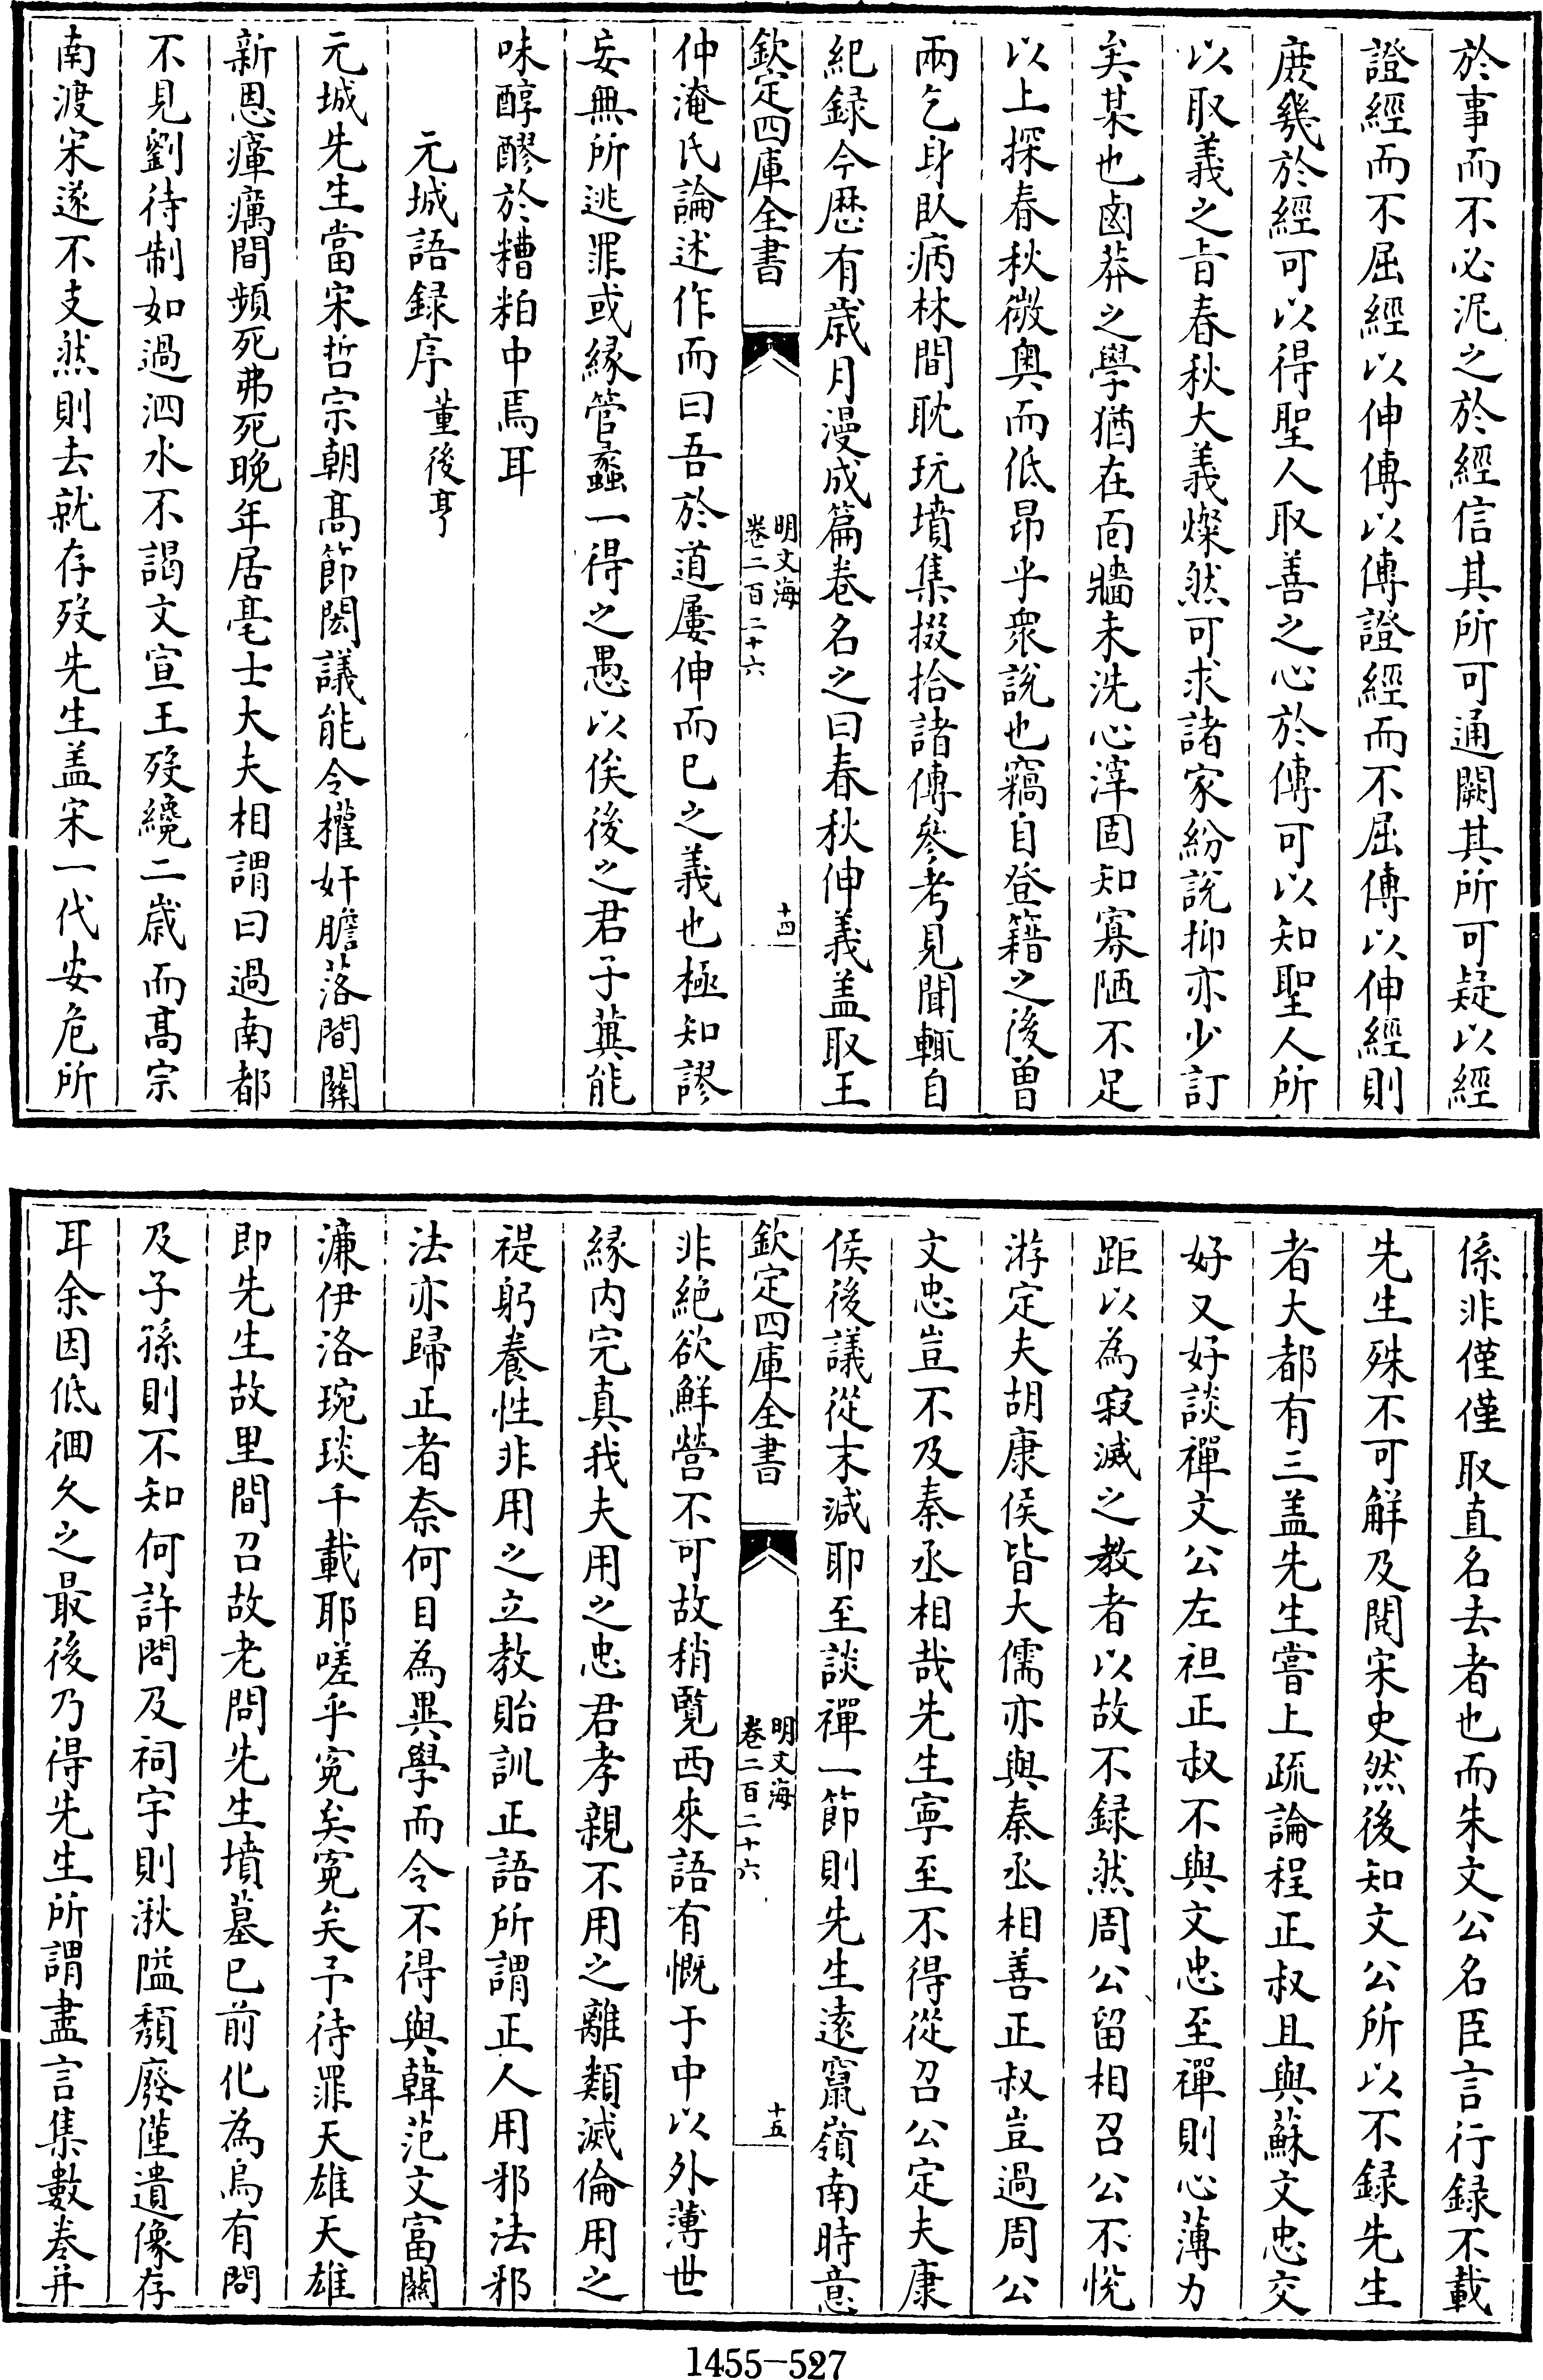 於事而不必泥之於經信其所可通闕其所可疑以經
證經而不屈經以伸傳以傳證經而不屈傳以伸經則
庶幾於經可以得聖人取善之心於傳可以知聖人所
以取義之旨春秋大義燦然可求諸家紛說抑亦少訂
矣某也鹵莽之學猶在面牆未洗心滓固知寡陋不足
以上探春秋微奥而低昂乎衆說也竊自登籍之後曽
兩乞身臥病牀間耽玩墳集掇拾諸傳參考見聞輒自
紀録今歴有歳月漫成篇巻名之曰春秋伸義盖取王
欽定四庫全書
明文海
卷二百二十六
十四
仲淹氏論述作而曰吾於道屢伸而已之義也極知謬
妄無所逃罪或縁管蠡一得之愚以俟後之君子冀能
味醇醪於糟粕中焉耳
元城語録序 董後亨
元城先生當宋哲宗朝髙節閎議能令權奸膽落間關
新恩瘴癘間頻死弗死晚年居亳士大夫相謂曰過南都
不見劉待制如過泗水不謁文宣王殁纔二歳而髙宗
南渡宋遂不支然則去就存殁先生盖宋一代安危所
係非僅僅取直名去者也而朱文公名臣言行録不載
先生殊不可解及閱宋史然後知文公所以不録先生
者大都有三盖先生嘗上疏論程正叔且與蘇文忠交
好又好談禪文公左袒正叔不與文忠至禪則心薄力
距以為寂滅之教者以故不録然周公留相召公不悅
游定夫胡康侯皆大儒亦與秦丞相善正叔豈過周公
文忠豈不及秦丞相哉先生寧至不得從召公定夫康
侯後議從末減耶至談禪一節則先生逺竄嶺南時意
欽定四庫全書
明文海
卷二百二十六
十五
非絶欲鮮營不可故稍覽西來語有慨于中以外薄世
縁内完真我夫用之忠君孝親不用之離類滅倫用之
禔躬養性非用之立教貽訓正語所謂正人用邪法邪
法亦歸正者奈何目為異學而令不得與韓范文富關
濓伊洛琬琰千載耶嗟乎寃矣寃矣予待罪天雄天雄
即先生故里間召故老問先生墳墓已前化為烏有問
及子孫則不知何許問及祠宇則湫隘頽廢僅遺像存
耳余因低徊久之最後乃得先生所謂盡言集數巻并
1455—527